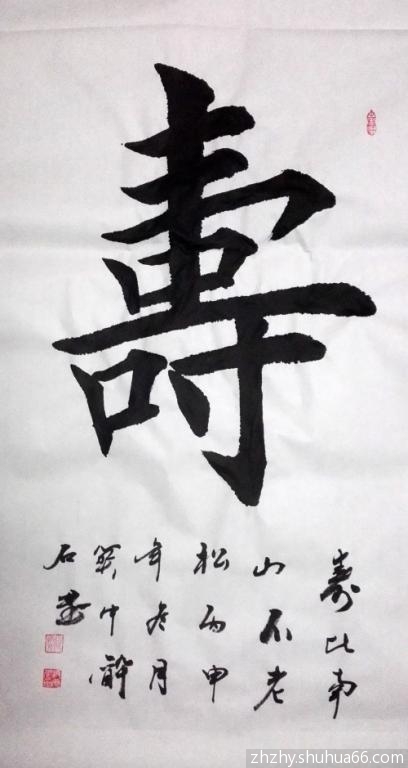 壽
壽比南
山不老
松丙申
年冬月
关中
石
zhzhy.shuhua66.com